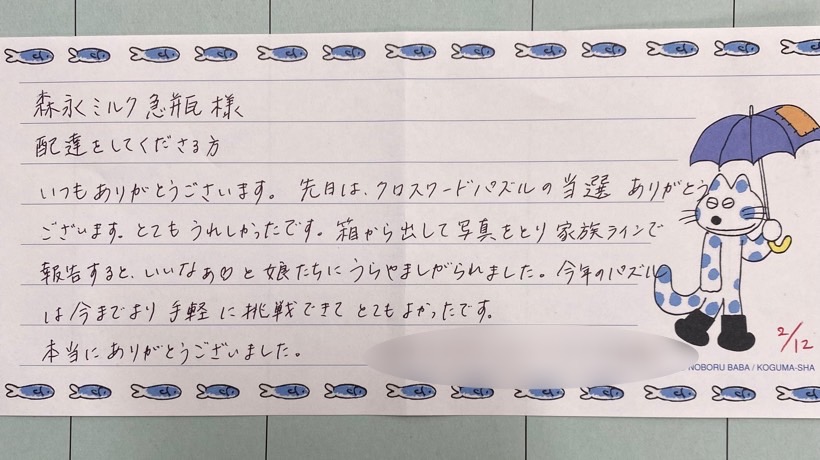 森永ミルク急瓶様
配達をしてくださる方
いつもありがとうございます。先日は、クロスワードパズルの当選 ありがとう
ございます。とてもうれしかったです。箱から出して写真をとり家族ラインで
報告すると、いいなぁ♡と娘たちにうらやましがられました。今年のパズル
は今までより手軽に挑戦できてとてもよかったです。
本当にありがとうございました。
2/12
NOBORU BABA / KOGUMA-SHA